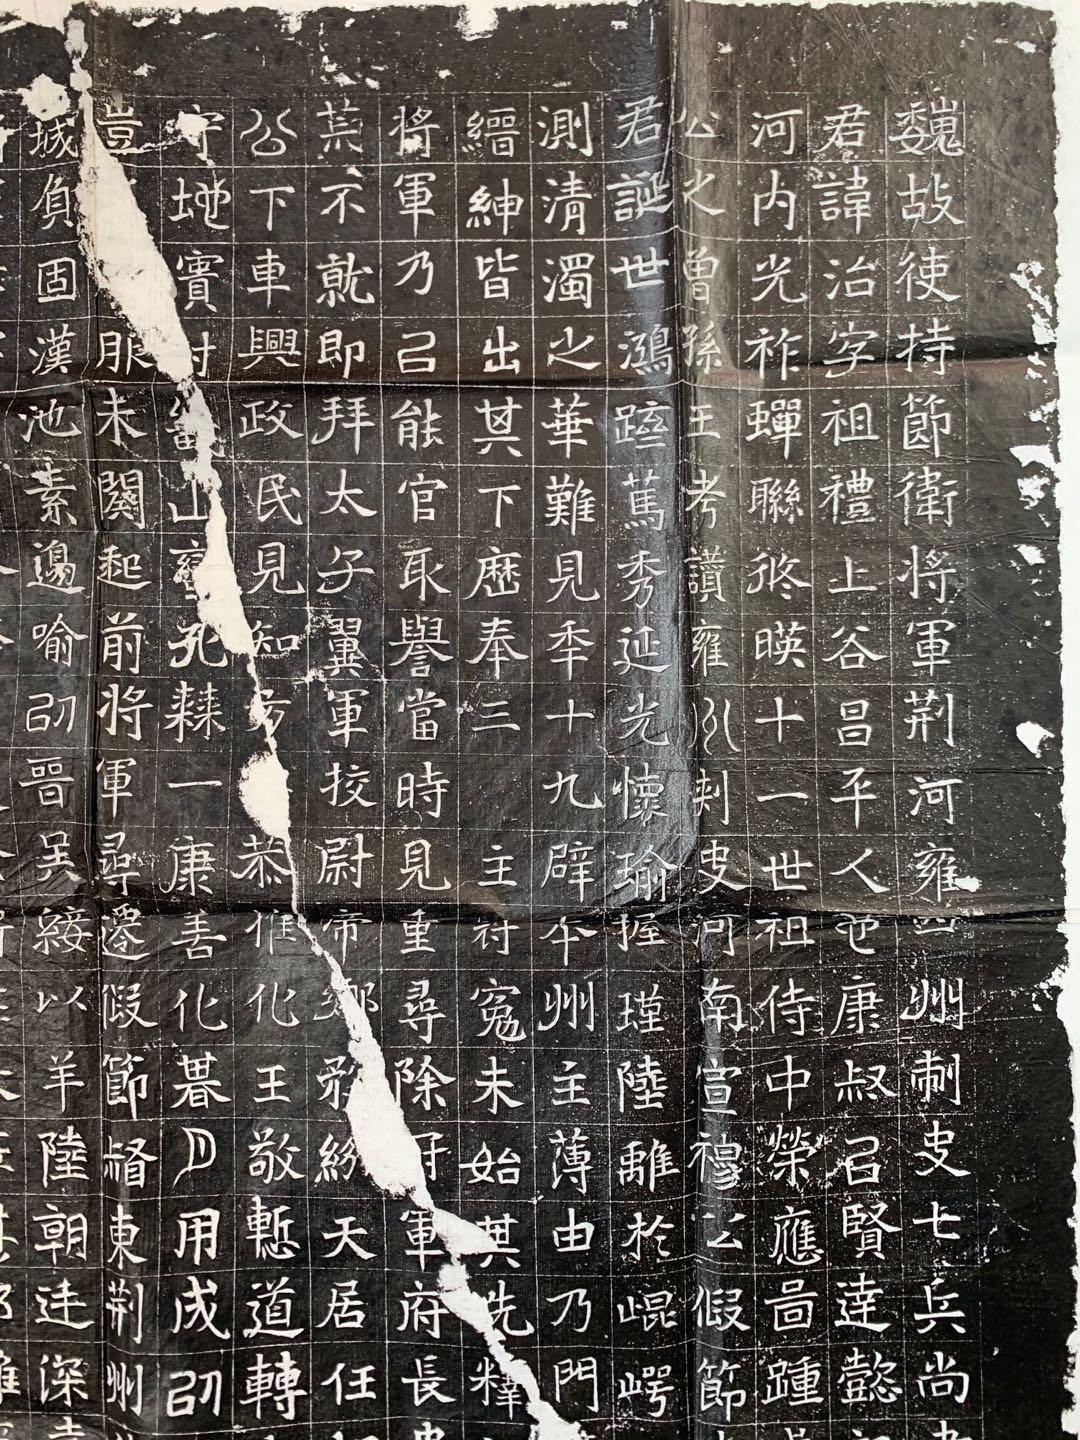 魏故使持節衛將軍荆河雍四州刺史七兵尚
君諱治字祖禮上谷昌平人也康叔㠯賢達懿
河内光祚蟬聯終暎十一世祖侍中榮應啚踵
公之曾孫王考讚雍州刺史河南宣穆公假節
君誕世鴻蹤篤秀延光懷瑜握瑾陸離於崐崿
測清濁之華難見年十九辟本州主薄由乃門
縉紳皆出其下歷奉三主苻寃未始其先釋
將軍乃㠯能官取譽當時見重尋除軍府長
荒不就即拜太子翼軍校尉帝鄉紛天居任
公下車興政民見知方恭惟化王敬慙道轉
守地實山孔棘一康善化暮月用成卲
豈服未闋起前將軍尋遷假節督東荆州
城負固漢池素邊喻卲晉吴綏以羊陸朝廷深